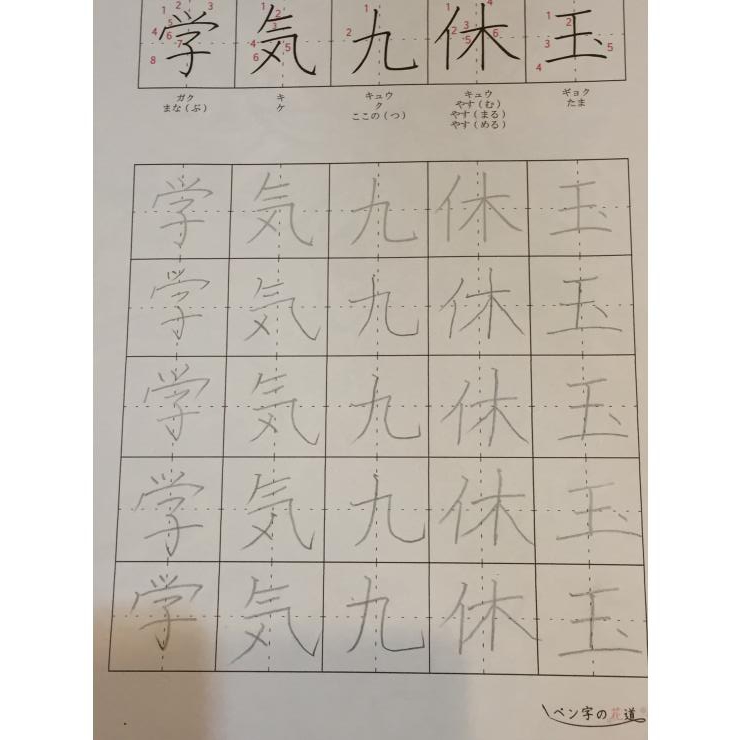 学 気 九 休 玉
ガク キ キュウ キュウ ギョク
まな(ぶ) ケ ク やす(む) たま
ここの(つ) やす(まる)
やす(める)
学 気 九 休 玉
学 気 九 休 玉
学 気 九 休 玉
学 気 九 休 玉
学 気 九 休 玉
ペン字の花道